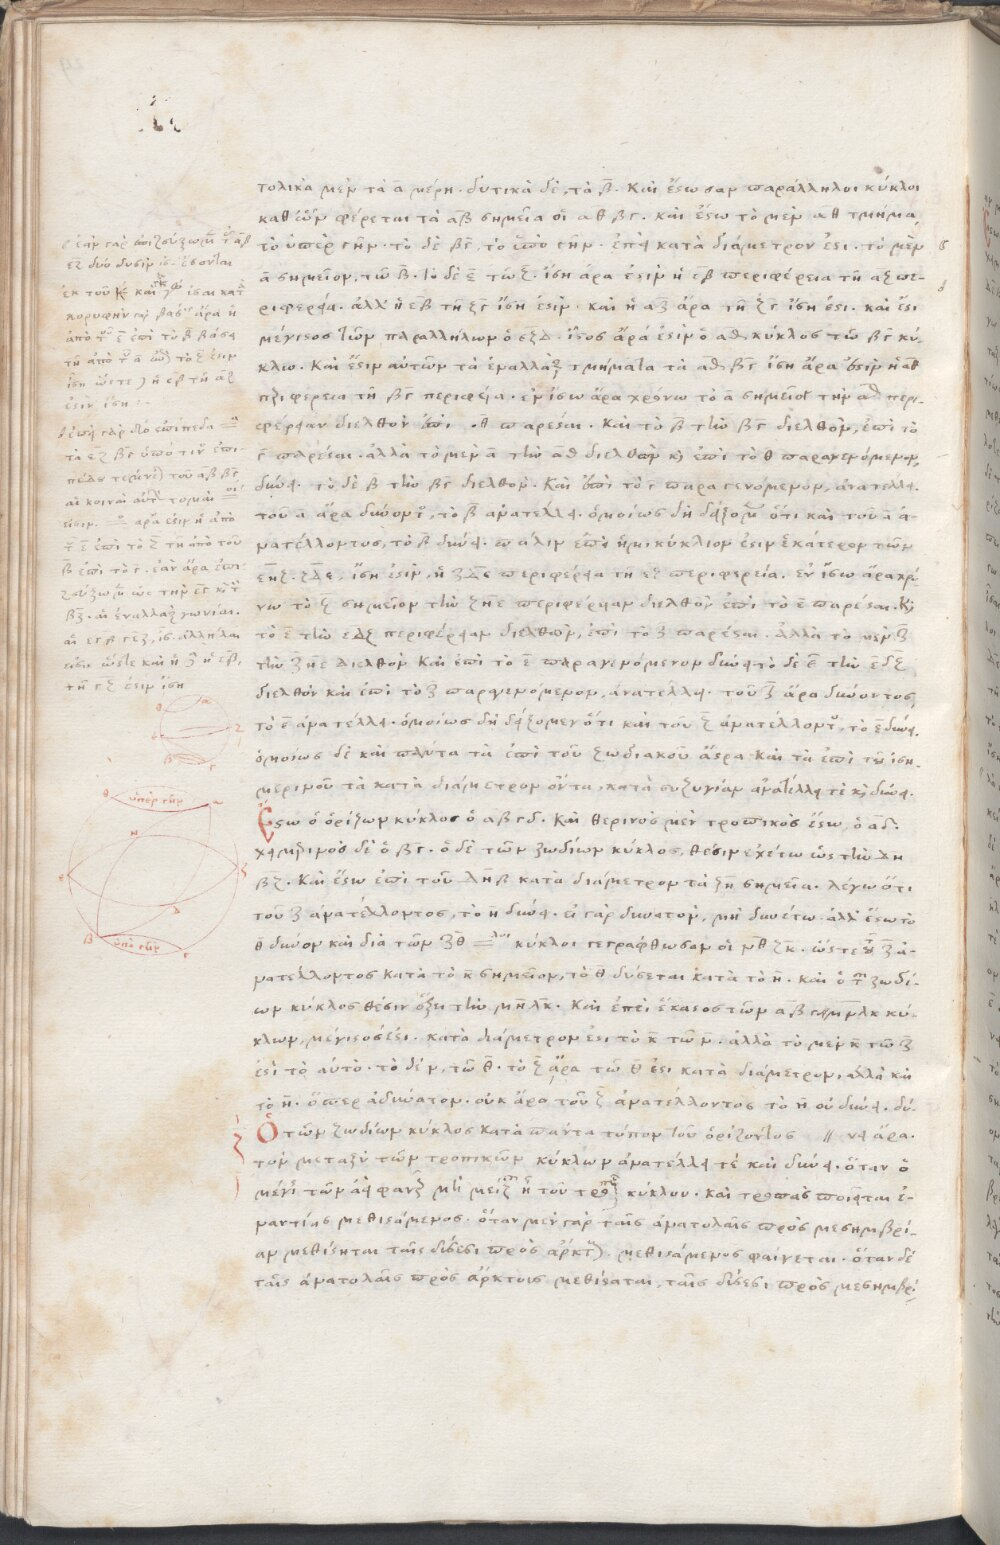 τολικὰ μὲν τὰ α μέρη· δυτικὰ δὲ, τὰ β. Καὶ ἔστωσαν παράλληλοι κύκλοι
καθ ὧν φέρεται τὰ αβ σημεῖα οἱ αθ βγ. καὶ ἔστω τὸ μὲν αθ τμῆμα
τὸ ὑπὲρ γῆν· τὸ δὲ βγ, τὸ ὑπὸ γῆν· ἐπεὶ κατὰ διάμετρον ἐστι· τὸ μὲν
α σημεῖον, τῶ β· τὸ δὲ ε τῶ ζ. ἴση ἄρα ἐστὶν ἡ εβ περιφέρεια τῆ αζ πε-
ριφερεία. ἀλλ' ἡ εβ τῆ ζγ ἴση ἐστὶν· καὶ ἡ αζ ἄρα τῆ ζγ ἴση ἐστι. καὶ ἔστι
μέγιστος τῶν παραλλήλων ὁ εζδ. ἴσος ἄρά ἐστὶν ὁ αθ κύκλος τῶ βγ κύ-
κλω. Καὶ ἔστιν αὐτῶν τὰ ἐναλλὰξ τμήματα τὰ αθ βγ ἴση ἄρα ἐστὶν ἡ αθ
περιφέρεια τῆ βγ περιφερεία· ἐν ἴσω ἄρα χρόνω τὸ α σημεῖον τὴν αθ περι-
φέρειαν διελθὸν ἐπὶ θ παρέσται. Καὶ τὸ β τὴν βγ διελθὸν, ἐπὶ τὸ
γ παρέσται. ἀλλὰ τὸ μὲν α τὴν αθ διελθὸν κὶ ἐπὶ τὸ θ παραγενόμενον,
δύνει. τὸ δὲ β τὴν βγ διελθὸν. Καὶ ἐπὶ τὸ γ παραγενόμενον, ἀνατέλλει.
τοῦ α ἄρα δύνοντος, τὸ β ἀνατέλλει. ὁμοίως δὴ δείξομεν ὅτι καὶ τοῦ α ἀ-
νατέλλοντος, τὸ β δύνει. πάλιν ἐπεὶ ἡμικύκλιον ἐστὶν ἑκάτερον τῶν
εηζ. ζδε, ἴση ἐστὶν, ἡ ζδε περιφέρεια τῆ εηζ περιφερεία. ἐν ἴσω ἄρα χρό-
νω τὸ ζ σημεῖον τὴν ζηε περιφέρειαν διελθὸν ἐπὶ τὸ ε παρέσται. Κὶ
τὸ ε τὴν εδζ περιφέρειαν διελθὸν, ἐπὶ τὸ ζ παρέσται. ἀλλὰ τὸ μὲν ζ
τὴν ζηε διελθὸν καὶ ἐπὶ τὸ ε παραγενόμενον δύνει τὸ δὲ ε τὴν εδζ
διελθὸν καὶ ἐπὶ τὸ ζ παραγενόμενον, ἀνατέλλει. τοῦ ζ ἄρα δύνοντος,
τὸ ε ἀνατέλλει. ὁμοίως δὴ δείξομεν ὅτι καὶ τοῦ ζ ἀνατέλλοντος, τὸ ε δύνει.
ὁμοίως δὲ καὶ πάντα τὰ ἐπὶ τοῦ ζωδιακοῦ ἄστρα καὶ τὰ ἐπὶ τοῦ ἰση-
μερινοῦ τὰ κατὰ διάμετρον ὄντα, κατὰ συζυγίαν ἀνατέλλει τὲ κὶ δύνει.
Ἔστω ὁ ὁρίζων κύκλος ὁ αβγδ. Καὶ θερινὸς μὲν τροπικὸς ἔστω, ὁ αδ.
χειμερινὸς δὲ ὁ βγ. ὁ δὲ τῶν ζωδίων κύκλος, θέσιν ἐχέτω ὡς τὴν δη
βζ. Καὶ ἔστω ἐπὶ τοῦ δηβ κατὰ διάμετρον τὰ ζη σημεῖα. λέγω ὅτι
τοῦ ζ ἀνατέλλοντος, τὸ η δύνει. εἰ γὰρ δυνατὸν, μὴ δυνέτω. ἀλλ' ἔστω τὸ
θ δῦνον καὶ διὰ τῶν ζθ κύκλοι γεγράφθωσαν οἱ μθ ζκ. ὥστε τοῦ ζ ἀ-
νατέλλοντος κατὰ τὸ κ σημεῖον, τὸ θ δύσεται κατὰ τὸ μ. καὶ ὁ τῶν ζωδί-
ων κύκλος θέσιν ἕξει τὴν μηλκ. Καὶ ἐπεὶ ἕκαστος τῶν αβγδ μηλκ κύ-
κλων, μέγιστός ἐστι. κατὰ διάμετρον ἐστι τὸ κ τῶ μ. ἀλλὰ τὸ μὲν κ τῶ ζ
ἐστὶ τὸ αὐτὸ. τὸ δὲ μ, τῶ θ. τὸ ζ ἄρα τῶ θ ἐστι κατὰ διάμετρον, ἀλλὰ καὶ
τὸ η. ὅπερ ἀδύνατον. οὐκ ἄρα τοῦ ζ ἀνατέλλοντος τὸ η οὐ δύνει. δύ-
Ὁ τῶν ζωδίων κύκλος κατὰ πάντα τόπον τοῦ ὁρίζοντος // νει ἄρα.
τὸν μεταξὺ τῶν τροπικῶν κύκλων ἀνατέλλει τὲ καὶ δύνει. ὅταν ὁ
μέγι τῶν ἀεὶ φανε μὴ μείζ ἦ τοῦ τροπ κύκλου. καὶ τροπὰς ποιεῖται ἐ-
ναντίας μεθιστάμενος. ὅταν μὲν γὰρ ταῖς ἀνατολαῖς πρὸς μεσημβρί-
αν μεθίστηται ταῖς δύσεσι πρὸς ἄρκτον μεθιστάμενος φαίνεται. ὅταν δὲ
ταῖς ἀνατολαῖς πρὸς ἄρκτους μεθίσταται, ταῖς δύσεσι πρὸς μεσημβρί-
ἐὰν γὰρ ἐπιζεύξωμεν
ἐκ τοῦ κ καὶ ἴσαι κατὰ
κορυφὴν βάσις ἄρα ἡ
ἀπὸ τοῦ ε ἐπὶ τὸ β βάσει
τῆ ἀπὸ τοῦ α ἐπὶ τὸ ζ ἐστὶν
ἴση ὥστε ἡ εβ τῆ αζ
ἐστὶν ἴση :-
ἐπεὶ γὰρ δύο ἐπίπεδα
τὰ εζ βγ ὑπό τινος ἐπι-
πέδου τέμνεται τοῦ αβ βγ
αἱ κοιναὶ αὐτῶν τομαὶ
εἰσιν. ἄρα ἐστὶν ἡ ἀπὸ
τοῦ ε ἐπὶ τὸ ζ τῆ ἀπὸ τοῦ
β ἐπὶ τὸ γ. ἐὰν ἄρα ἐπι-
ζεύξωμεν ὡς τὴν εγ κὶ τὴν
βζ. αἱ ἐναλλὰξ γωνίαι.
αἱ εγβ γεζ, ἴσαι ἀλλήλαις
εἰσιν ὥστε καὶ ἡ εβ,
τῆ γζ ἐστὶν ἴση
ὑπὲρ γῆν
ὑπὸ γῆν